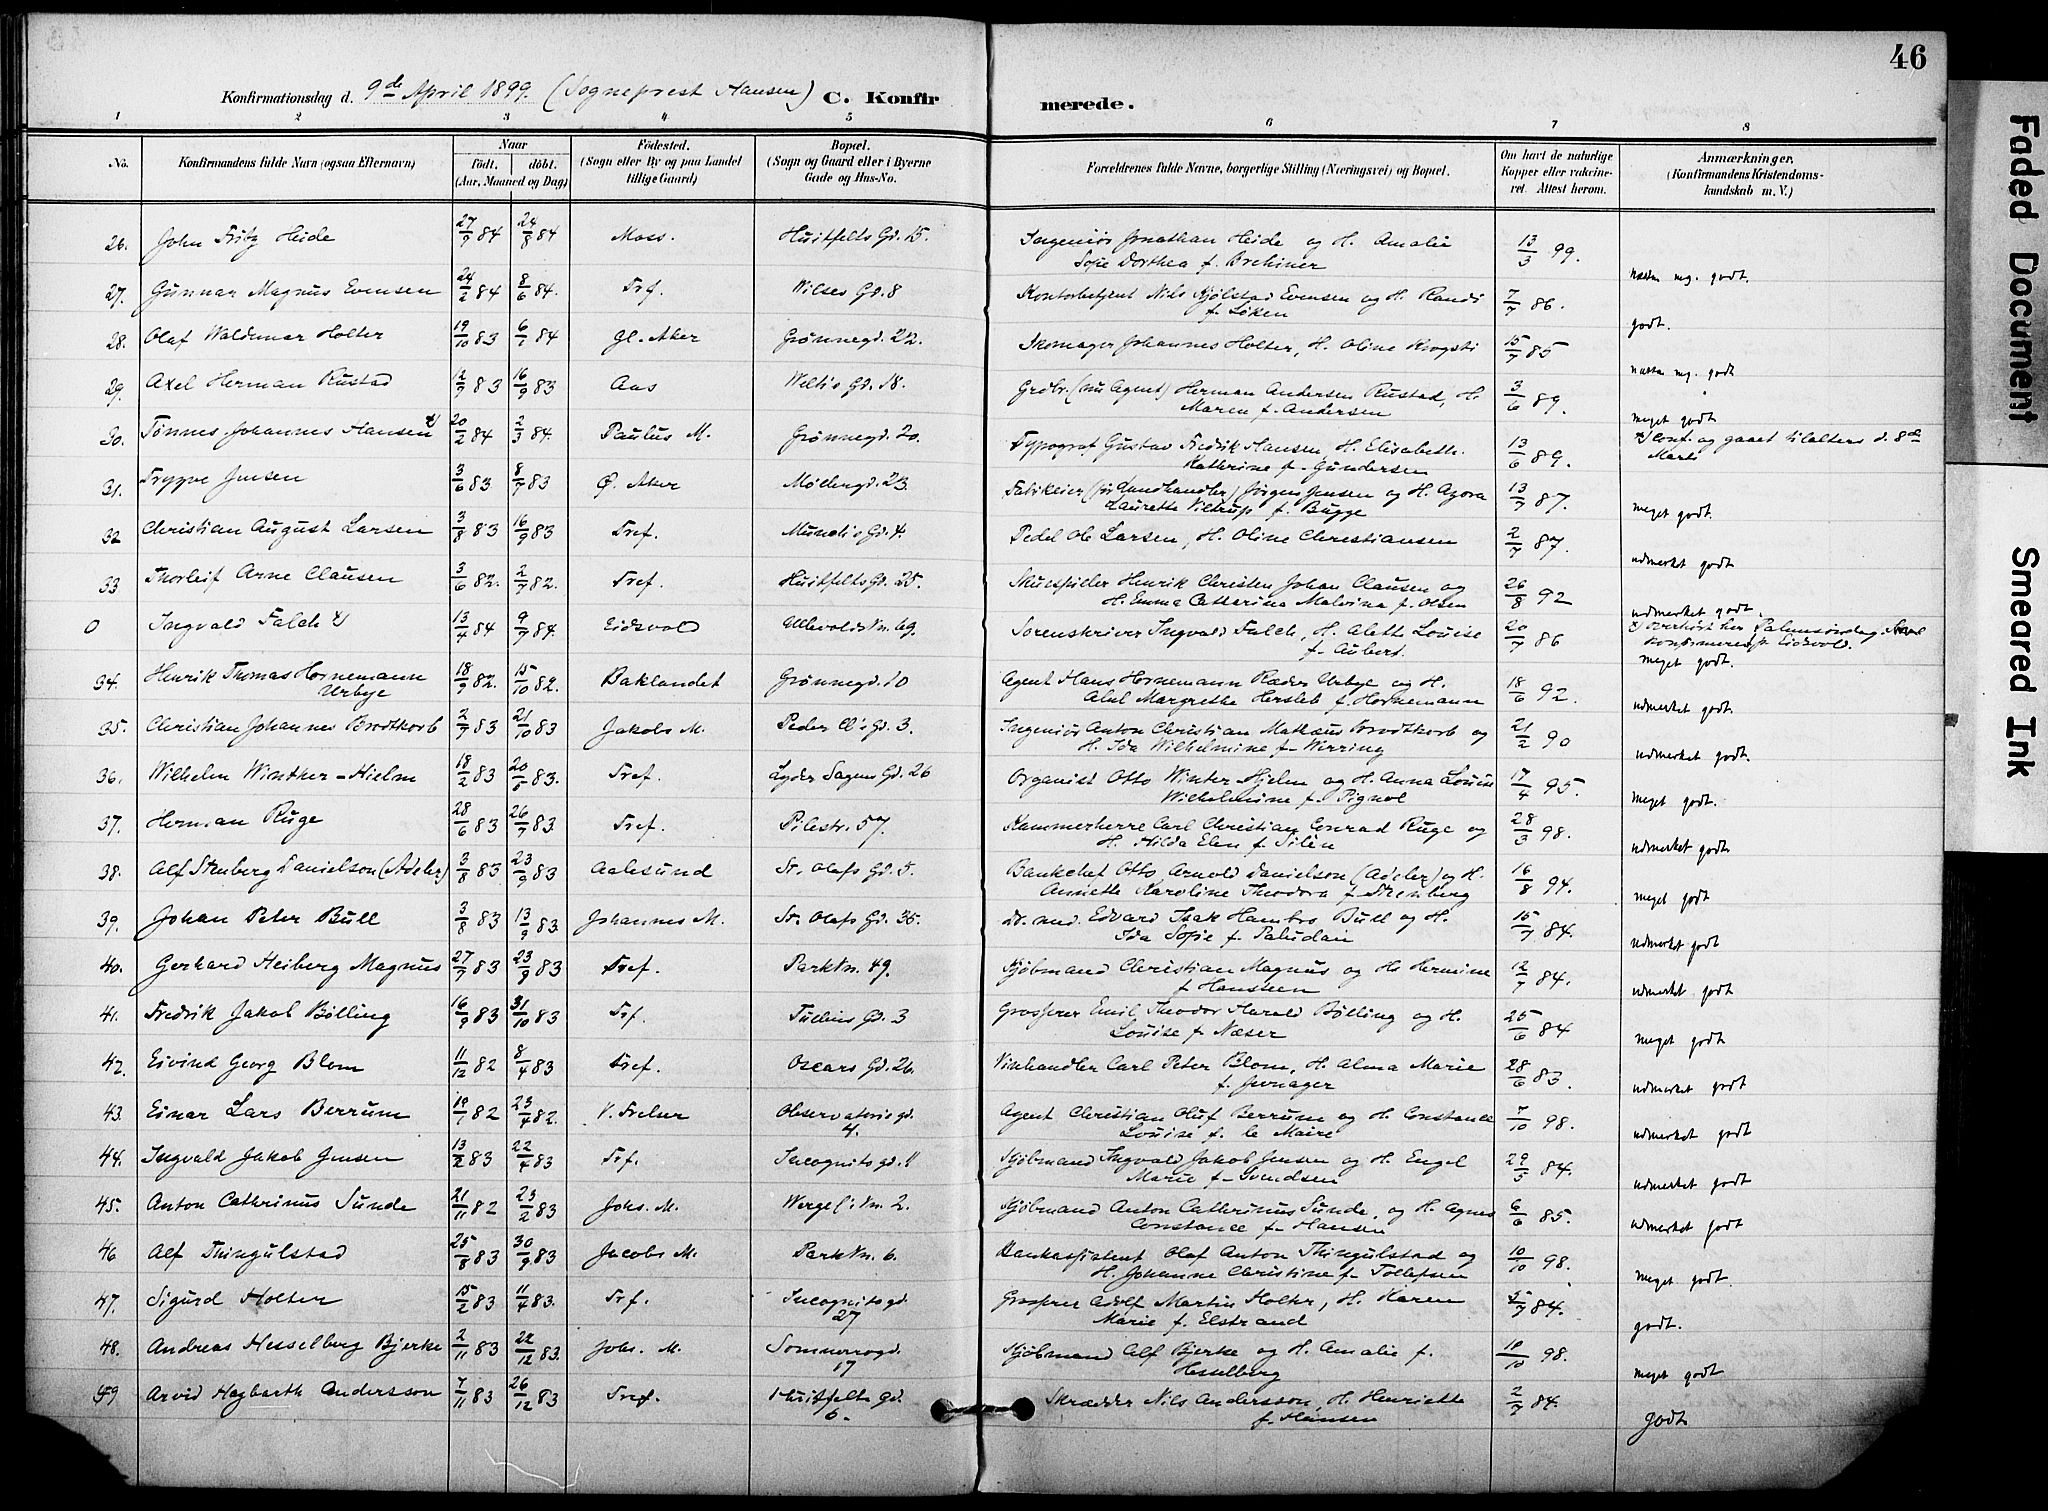 46
Konfirmationsdag d. 9de April 1899. (Sogneprest Hansen) C. Konfirmerede.
1 2 3 4 5 6 7 8
No. Konfirmandens fulde Navn (ogsaa Efternavn) Naar født. døbt. (Aar, Maaned og Dag) Fødested. (Sogn eller By og paa Landet tillige Gaard) Bopæl. (Sogn og Gaard eller i Byerne Gade og Hus-No. Forældrenes fulde Navne, borgerlige Stilling (Næringsvei) og Bopæl. Om havt de naturlige Kopper eller vakcineret. Attest herom. Anmærkninger. (Konfirmandens Kristendomskundskab m. V.)
26. John Fritz Heide 27/9 84 24/8 84 Moss. Huitfelts Gd. 15. Ingeniör Jonathan Heide og H. Amalie 13/3 99.
Sofie Dorthea f. næsten mg. godt.
27. Gunnar Magnus Evensen 24/2 84 8/6 84. Trf. Wilses Gd. 8 Kontorbetjent Nils Kjölstad Evensen og H. Randi 7/7 86.
f. Löken godt.
28. Olaf Waldemar Holter 19/10 83 6/1 84 Gl. Aker Grønnegd. 22. Skomager Johannes Holter, H. Oline Krogsti 15/7 85
næsten mg. godt
29. Axel Herman Rustad 12/7 83 16/9 83 Aas Welts Gd. 18. Grdbr. (nu Agent) Herman Andersen Rustad, H. 3/6 89.
Maren f. Andersen meget godt
30. Tönnes Johannes Hansen 20/2 84 2/3 84. Paulus M. Grønnegd. 20. Typograf Gustav Fredrik Hansen, H. Elisabeth 13/6 89. conf. og gaaet tilalters d. 8de
Kathrine f. Gundersen Marts
31. Trygve Jensen 3/6 83 8/7 83 Ø. Aker Møllergd. 23. Fabrikeier (för Landhandler) Jörgen Jensen og H. Agora 13/7 87.
Laurette Viltrup f. Bugge meget godt.
32 Christian August Larsen 3/8 83 16/9 83 Tref. Munch's Gd. 4. Pedel Ole Larsen, H. Oline Christiansen 2/7 87.
udmerket godt
33 Thorleif Arne Clausen 3/6 82. 2/7 82. Tref. Huitfelts Gd. 25. Skuespiller Henrik Christen Johan Clausen og 26/8 92
H. Emma Catharina Malvina f. Olsen udmerket godt.
0 Ingvald Falch 13/4 84 9/7 84. Eidsvold Ullevoldsvn. 69. Sorenskriver Ingvald Falch, H. Alette Louise 20/7 86 overhört her Palmesöndag. Skal
f. Aubert. konfirmeres i Eidsvold.
meget godt.
34. Henrik Thomas Hornemann 18/9 82. 15/10 82. Baklandet Grønnegd. 10 Agent Hans Hornemann Ræder Urbye og H. 18/6 92.
Urbye Abel Margrethe Hersleb f. Hornemann udmerket godt.
35. Christian Johannes Brodtkorb 2/7 83 21/10 83 Jakobs M. Peder Cl's Gd. 3. Ingeniör Anton Christian Mathæus Brodtkorb og 21/2 90
H. Ida Wilhelmine f. Wirring udmerket godt.
36. Wilhelm Winther-Hjelm 18/2 83 20/5 83. Tref. Lyder Sagens Gd. 26 Organist Otto Winter-Hjelm og H. Anna Louise 17/4 95.
Wilhelmine f. Pignol meget godt.
37. Herman Ruge 28/6 83 26/7 83. Tref. Pilestr. 57. Kammerherre Carl Christian Conrad Ruge og 28/3 98.
H. Hilda Elen f. Silén udmerket godt.
38. Alf Stenberg Danielson (Adeler) 3/8 83 23/9 83 Aalesund St. Olafs Gd. 5. Bankchef Otto Arnold Danielson (Adeler) og H. 16/8 94.
Annette Karoline Theodora f. Stenberg meget godt
39. Johan Peter Bull 3/8 83 13/9 83. Johannes M. St. Olafs Gd. 35. Dr. med. Edvard Isak Hambro Bull og H. 15/7 84.
Ida Sofie f. Paludan udmerket godt
40. Gerhard Heiberg Magnus 27/7 83 23/9 83 Tref. Parkvn. 49. Kjöbmand Christian Magnus og H. Hermine 12/7 84.
f. Hanssen udmerket godt
41. Fredrik Jakob Bölling 16/9 83 31/10 83 Trf. Tullins Gd. 3 Grosserer Emil Theodor Harald Bölling og H. 25/6 84
Louise f. Næser meget godt
42. Eivind Georg Blom 11/12 82 8/4 83 Tref. Oscars Gd. 26. Vinhandler Carl Peter Blom, H. Alma Marie 28/6 83.
f. Jevnager udmerket godt
43. Einar Lars Berrum 19/7 82 23/4 82. V. Frelser Observatorie gd. Agent Christian Oluf Berrum og H. Constance 7/10 98.
4. Louise f. le Maire udmerket godt
44. Ingvald Jakob Jensen 13/2 83 22/4 83 Trf. Incognito gd. 11 Kjöbmand Ingvald Jakob Jensen og H. Engel 29/5 84.
Marie f. Svendsen udmerket godt
45. Anton Cathrinus Sunde 21/11 82 23/2 83 Johs. M. Wergel.'s Vn. 2. Kjöbmand Anton Cathrinus Sunde, og H. Agnes 6/6 85.
Constance f. Hansen udmerket godt
46 Alf Thingulstad 25/8 83 30/9 83 Jacobs M. Parkvn. 6. Bankassistent Olaf Anton Thingulstad og 10/10 98.
H. Johanne Christine f. Tollefsen meget godt.
47. Sigurd Holter 15/2 83 11/4 83. Trf. Incognito gd. Grosserer Adolf Martin Holter, H. Karen 5/7 84.
27 Marie f. Elstrand godt.
48. Andreas Hesselberg Bjerke 2/11 83 22/12 83. Johs. M. Sommerrogd. Kjöbmand Alf Bjerke og H. Amalie f. 10/10 98.
17 Hesselberg meget godt
49 Arvid Hagbarth Andersson 7/11 83 26/12 83 Tref. Huitfelts Gd. Skrædder Nils Andersson, H. Henriette 2/7 84.
6. f. Hansen godt
Faded Document
Smeared Ink